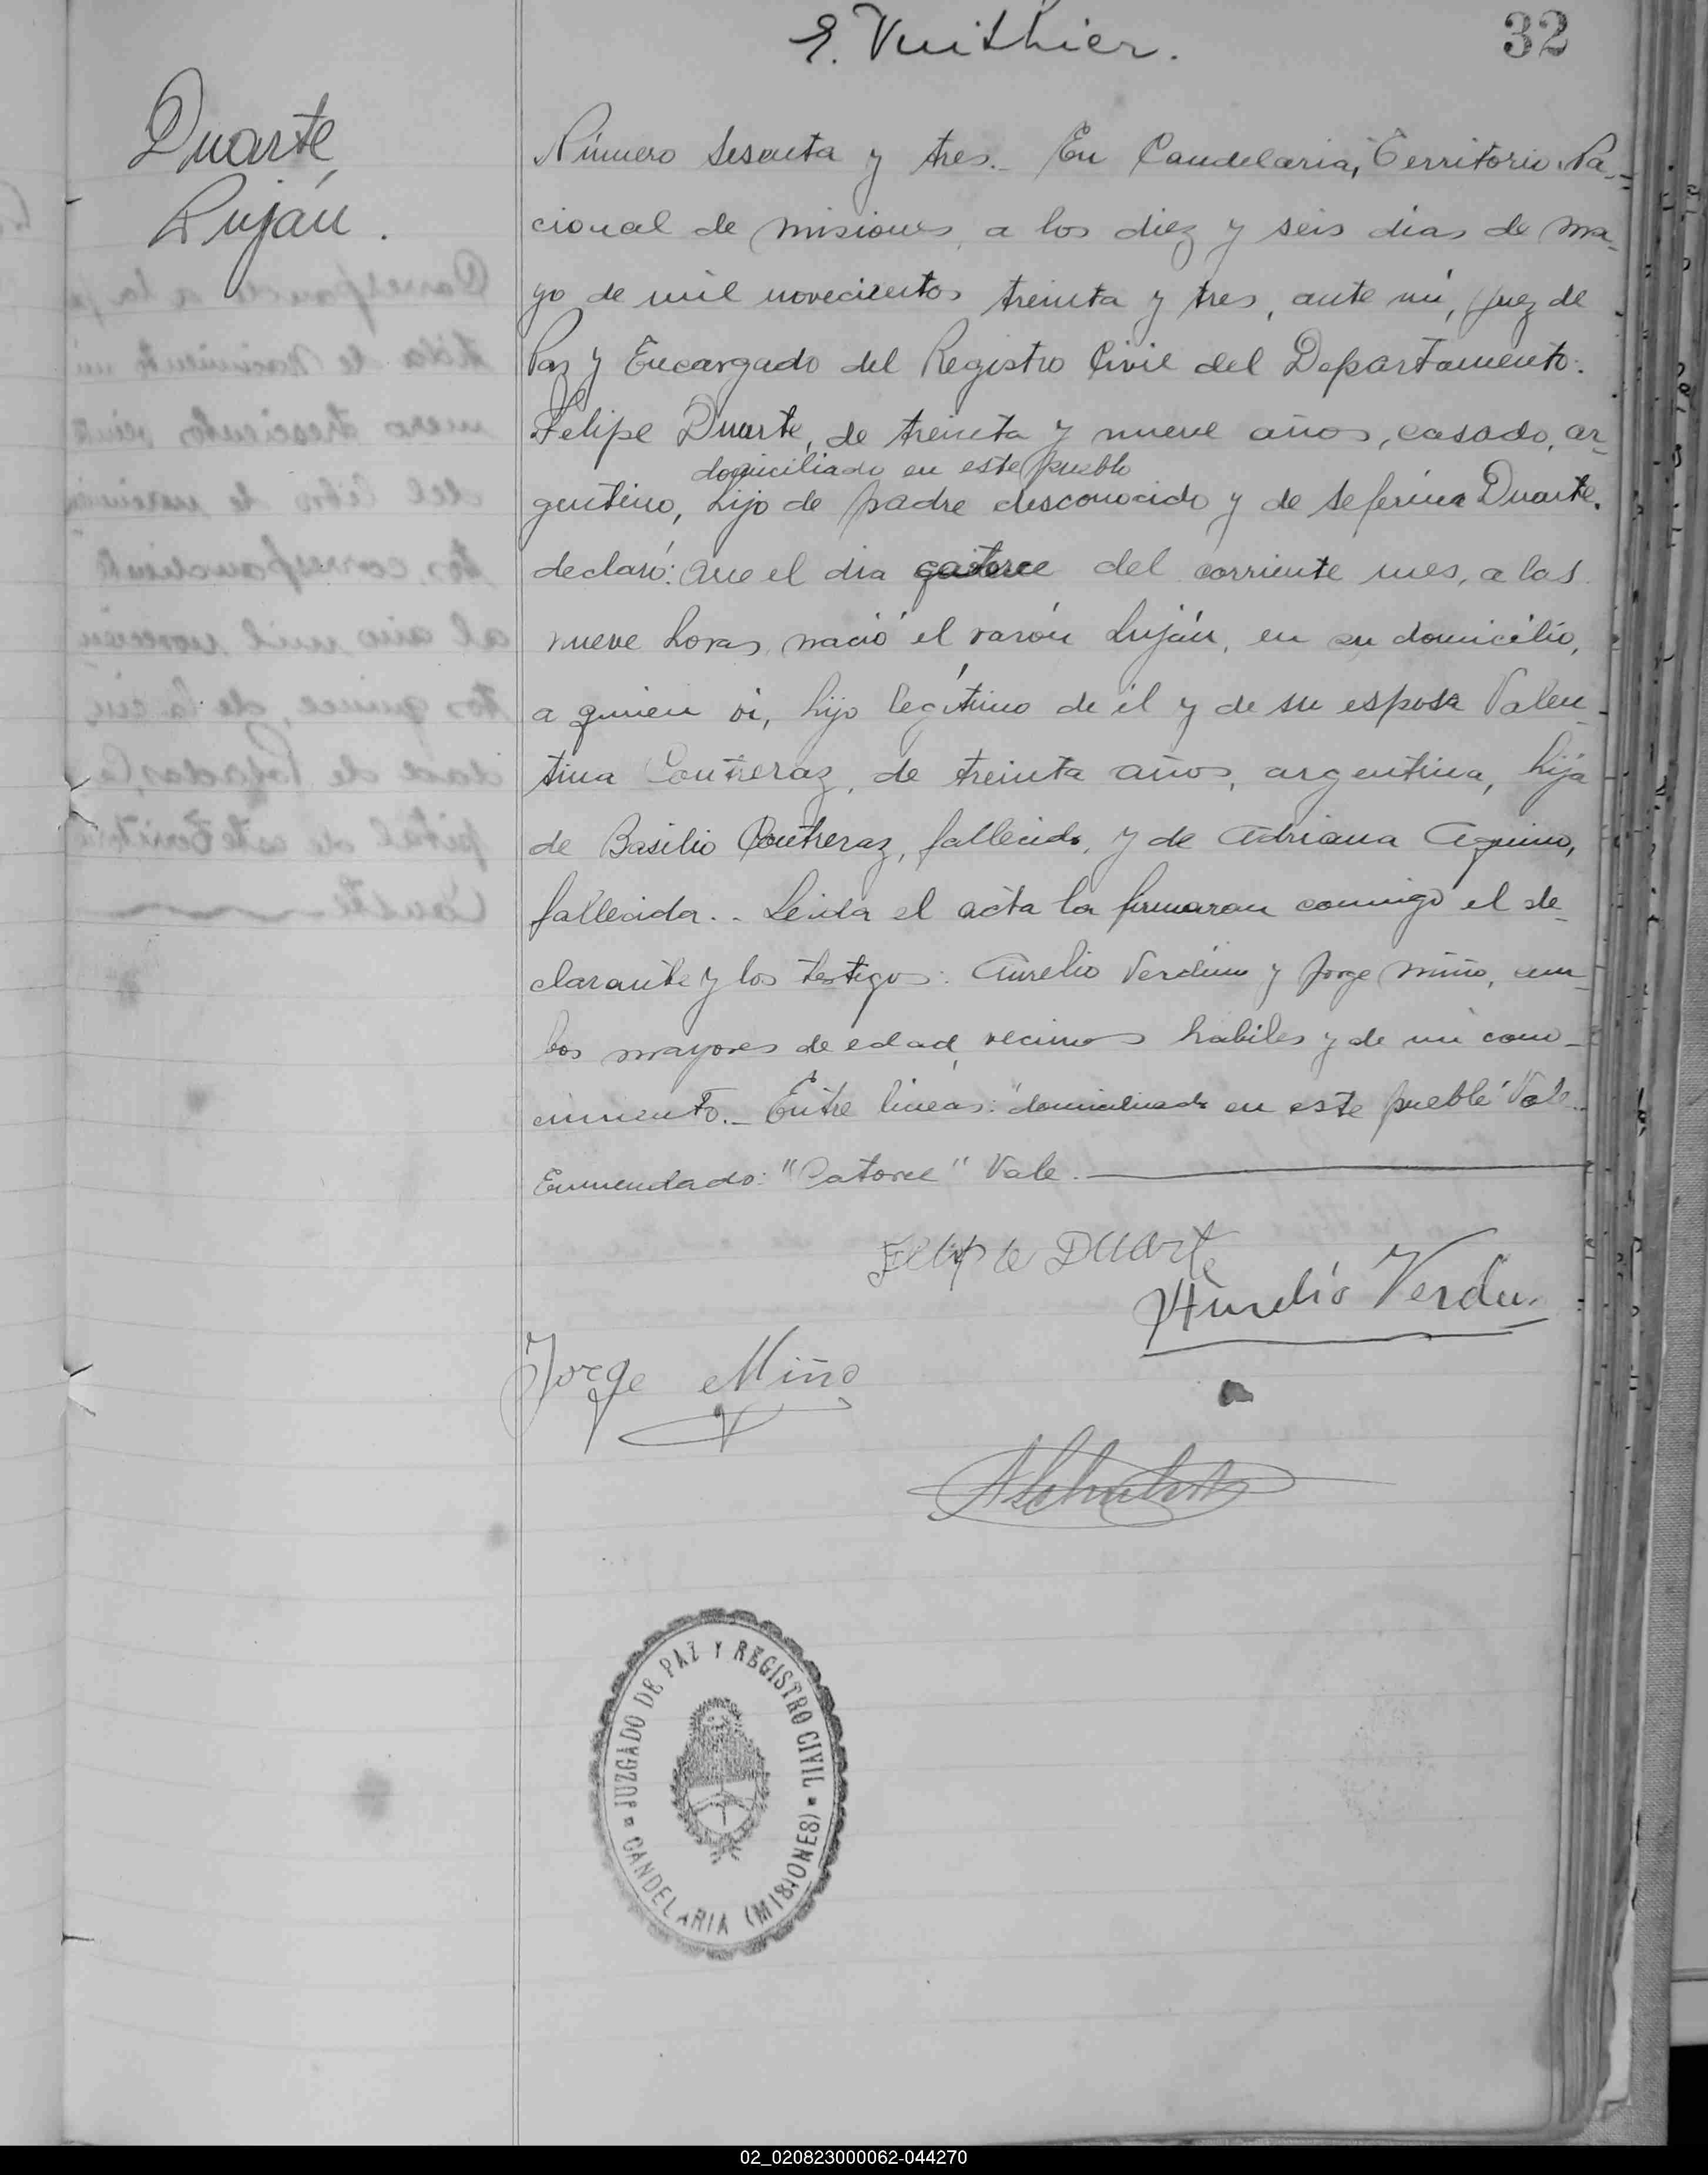 E. Vuithier.
32
Duarte,
Luján.
Número Sesenta y tres.- En Candelaria, Territorio Na-
cional de Misiones, a los diez y seis dias de Ma-
yo de mil novecientos treinta y tres, ante mí, Juez de
Paz y Encargado del Registro Civil del Departamento:
Felipe Duarte, de treinta y nueve años, casado, ar-
domiciliado en este pueblo
gentino, hijo de padre desconocido y de Seferina Duarte.
declaró: Que el dia catorce del corriente mes, a las
nueve horas, nació el varón Luján, en su domicilio,
a quien vi, hijo legítimo de él y de su esposa Valen-
tina Contreraz, de treinta años, argentina, hija
de Basilio Contreraz, fallecido, y de Adriana Aquino,
fallecida.. Leida el acta la firmaron conmigo el de-
clarante y los testigos: Aurelio Verdún y Jorge Miño, am-
bos mayores de edad, vecinos habiles y de mi cono-
cimiento.- Entre lineas: "domiciliado en este pueblo" Vale.
Enmendado: "Catorce" Vale.
Felipe Duarte
Aurelio Verdun
Jorge Miño
JUZGADO DE PAZ Y REGISTRO CIVIL
CANDELARIA (MISIONES)
02_020823000062-044270